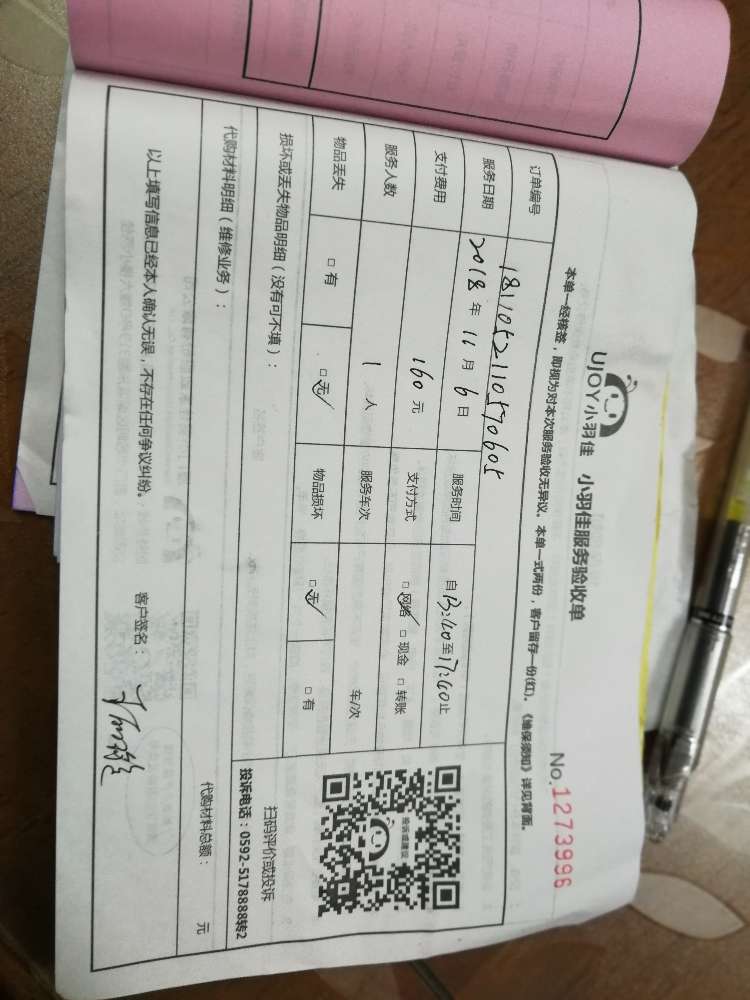 UJOY小羽佳 小羽佳服务验收单
No.1273996
本单一经核签，即视为对本次服务验收无异议。本单一式两份，客户留存一份(红)。《维保须知》详见背面。
订单编号 1811052110570605
服务日期 2018年11月6日 服务时间 自13:40至17:40止
支付费用 160元 支付方式 □网络 □现金 □转账
服务人数 1人 服务车次 车/次
物品丢失 □有 □无 物品损坏 □无 □有
损坏或丢失物品明细（没有可不填）：
代购材料明细（维修业务）：
代购材料总额： 元
投诉或建议
扫码评价或投诉
投诉电话：0592-5178888转2
以上填写信息已经本人确认无误，不存在任何争议纠纷。
客户签名：